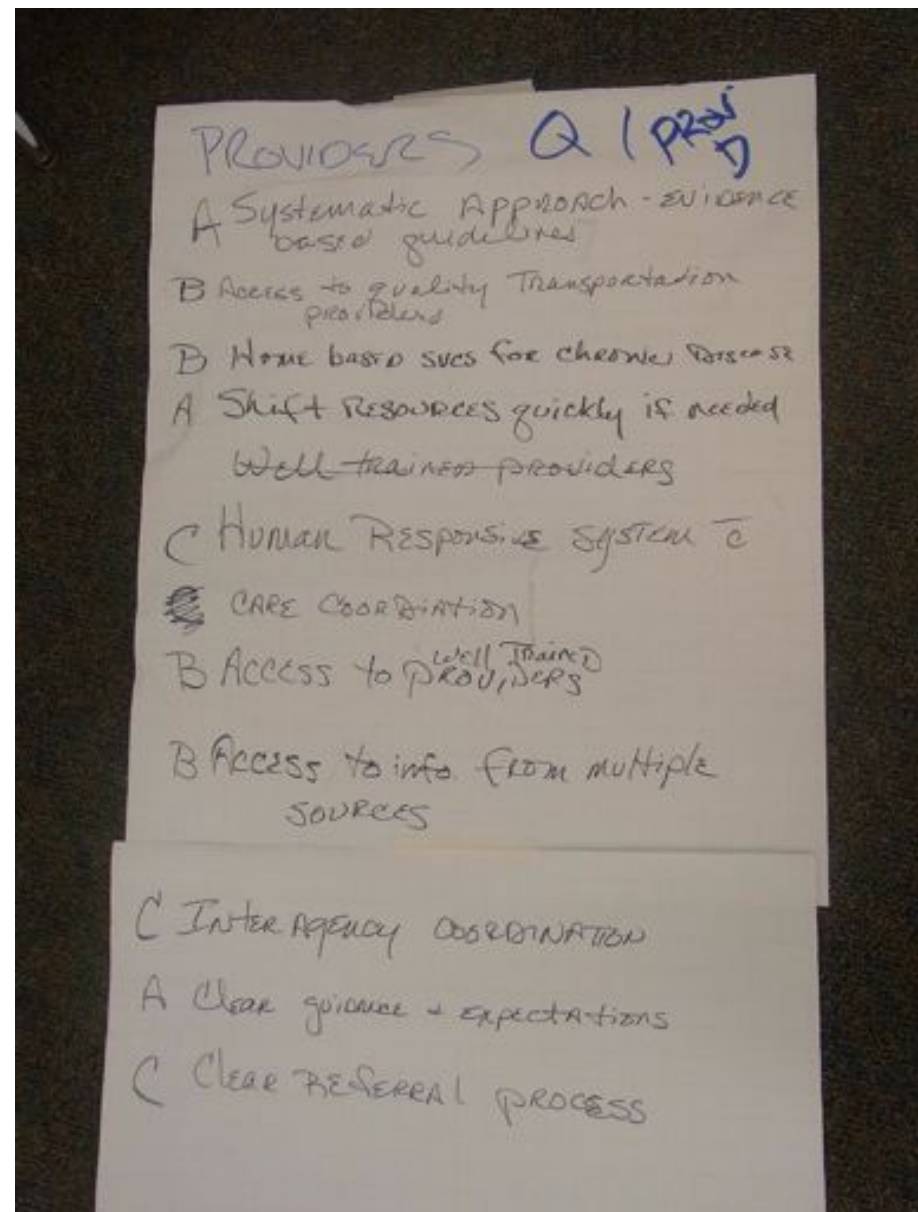 PROVIDERS Q1 PROV D
A Systematic Approach - Evidence
based guidelines
B Access to quality Transportation
providers
B Home based svcs for chronic Disease
A Shift Resources quickly if needed
Well trained providers
C Human Responsive system c̄
CARE COORDINATION
Well Trained
B Access to PROVIDERS
B Access to info from multiple
sources
C Interagency COORDINATION
A Clear guidance + expectations
C Clear Referral process